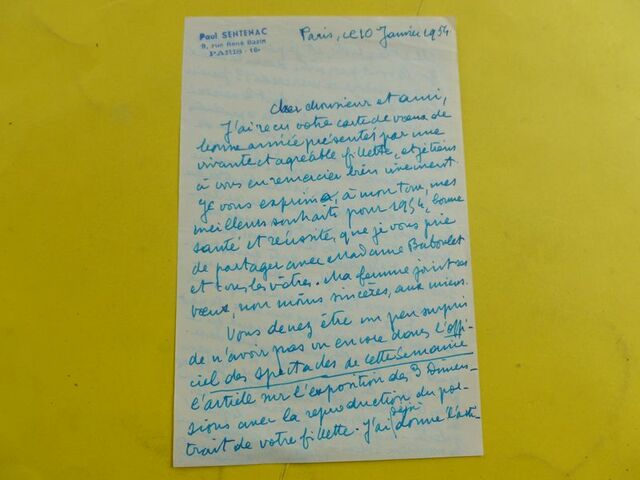 Paul SENTENAC
9, rue René Bazin
PARIS - 16e
Paris, le 10 Janvier 1954
Cher Monsieur et ami,
J'ai reçu votre carte de vœux de
bonne année présentés par une
vivante et agréable fillette, et je tiens
à vous en remercier bien vivement.
Je vous exprime, à mon tour, mes
meilleurs souhaits pour 1954, bonne
santé et réussite, que je vous prie
de partager avec Madame Baboulet
et tous les vôtres. Ma femme joint ses
vœux, non moins sincères, aux miens.
Vous devez être un peu surpris
de n'avoir pas vu encore dans l'Offi-
ciel des Spectacles de cette Semaine
l'article sur l'exposition des 3 Dimen-
sions avec la reproduction du por-
trait de votre fillette. J'ai déjà donné l'arti-